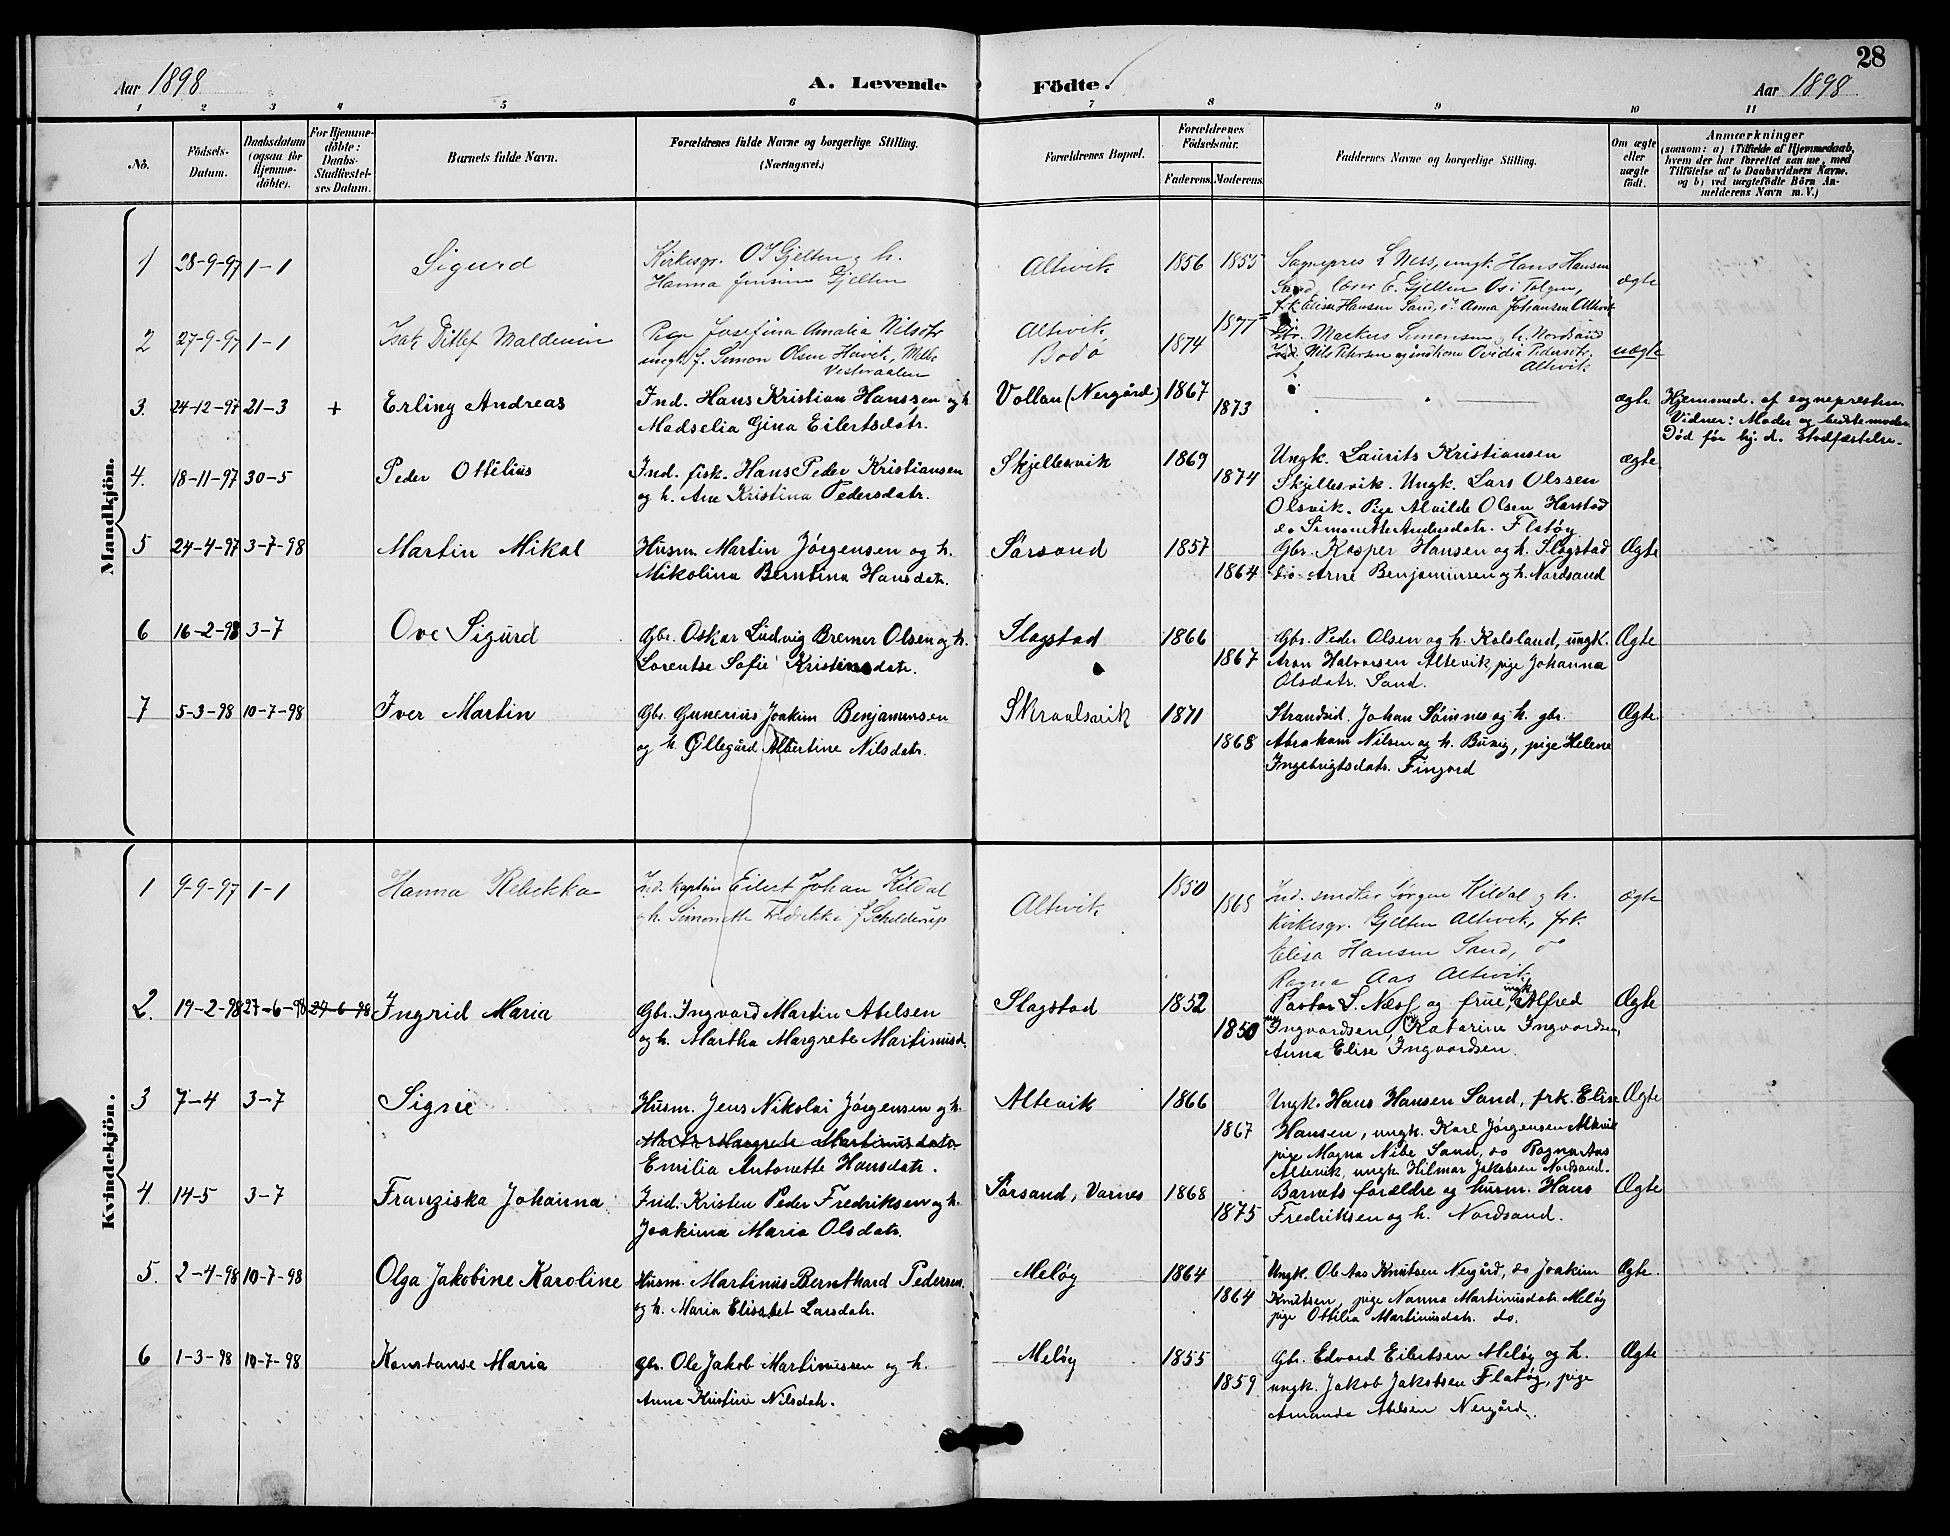 28
Aar 1898 A. Levende Födte. Aar 1898
1 2 3 4 5 6 7 8 9 10 11
No.
Födsels-Datum.
Daabsdatum (ogsaa for Hjemme-döbte).
For Hjemme-döbte: Daabs-Stadfæstel-ses Datum.
Barnets fulde Navn.
Forældrenes fulde Navne og borgerlige Stilling.
(Næringsvei.)
Forældrenes Bopæl.
Forældrenes Födselsaar.
Faderens. Moderens.
Faddernes Navne og borgerlige Stilling.
Om ægte eller uægte födt.
Anmærkninger
(saasom: a) i Tilfælde af Hjemmedaab,
hvem der har forrettet samme, med
Tilföielse af to Daabsvidners Navne.
og b) ved uægtefödte Börn An-
melderens Navn m. V.)
Mandkjön.
1 28-9-97 1-1 Sigurd Kirkesgr. O J Gjelten og h. Altevik 1856 1855 Sognepres L Ness, ungk. Hans Hansen ægte
Hanna Gjelten Sand, E. Gjelten Os i Tolgen,
frk Elise Hansen Sand, do Anna Johansen Altevik
2 27-9-97 1-1 Isak Ditlef Waldemin Pige Josefina Amalia Nilsdtr Altevik 1877 Markus Simonsen og h. Nordsand uægte
ungk. f. Simon Olsen Melbo Bodø 1874 Ind. Nils Petersen og indkone Ovidia Pedersdtr.
Vesteraalen Altevik
3. 24-12-97 21-3 + Erling Andreas Ind. Hans Kristian Hanssen og h Vollan (Nergård) 1867 ægte Hjemmed. af sognepresten.
Madselia Gina Eilertsdatr. 1873 Vidner: Moder og bedstemoder.
Død før hj. d. stadfæstelse.
4. 18-11-97 30-5 Peder Ottilius Ind. fisk. Hans Peder Kristiansen Skjellesvik 1869 Ungk. Laurits Kristiansen ægte
og h. Ane Kristina Pedersdatr. 1874 Skjellesvik. Ungk. Lars Olssen
Olsvik. Pige Alvilde Olsen Harstad
do Simonette Andersdatr. Flatøy
5 24-4-97 3-7-98 Martin Mikal Husm. Martin Jørgensen og h. Sørsand 1857 Gbr. Kasper Hansen og h. Slagstad Ægte
Mikolina Berntina Hansdatr. 1864 do Arne Benjaminsen og h. Nordsand
6 16-2-98 3-7 Ove Sigurd Gbr. Oskar Ludvig Bremer Olsen og h. Slagstad 1866 Gbr. Peder Olsen og h. Kalsland, ungk. Ægte
Lorentse Sofie Kristinsdatr. 1867 Aron Halvorsen Altevik, pige Johanna
Olsdatr. Sand.
7 5-3-98 10-7-98 Iver Martin Gbr. Gunerius Joakim Benjaminsen Skraalsvik 1871 Strandsid. Johan Sömnes og h. gbr. Ægte
og h. Øllegård Albertine Nilsdatr. 1868 Abraham Nilsen og h. Buvig, pige Helene
Ingebrigtsdatr. Fingord
Kvindekjön.
1 9-9-97 1-1 Hanna Rebekka Ind. kaptein Eilert Johan Kildal Altevik 1850 Ind. Jørgen Kildal og h. ægte
og h. Simonette Fredrikke f Schelderup 1865 Kirkesgr. Gjelten Altevik, frk.
Elisa Hansen Sand, do
Ragna Aas Altevik
2. 19-2-98 27-6-98 27-6-98 Ingrid Maria Gbr. Ingvard Martin Abelsen Slagstad 1852 Pastor S. Næss og frue, ungk. Alfred Ægte
og h. Martha Margrete Martinusd. 1850 Ingvardsen, Katarine Ingvardsen,
Anna Elise Ingvardsen.
3 7-4 3-7 Signe Husm. Jens Nikolai Jørgensen og h. Altevik 1866 Ungk. Hans Hansen Sand, frk. Elise Ægte
Martha Margrete Martinusdatr 1867 Hansen, ungk. Karl Jørgensen Altevik
Emilia Antonette Hansdatr. pige Magna Nibe Sand, do Ragna Aas
Altevik, ungk. Hilmar Jakobsen Nordsand.
4. 14-5 3-7 Franziska Johanna Ind. Kristen Peder Fredriksen og h. Sørsand, Varnes 1868 Barnets forældre og husm. Hans Ægte
Joakima Maria Olsdatr. 1875 Fredriksen og h. Nordsand.
5. 2-4-98 10-7-98 Olga Jakobine Karoline Husm. Martinus Bernthard Pedersen Meløy 1864 Ungk. Ole Aas Knutsen Nergård, do Joakim Ægte.
og h. Maria Elisabet Larsdatr. 1864 Knutsen, pige Nanna Martinusdatr. Meløy
pige Ottilia Martinusdatr. do.
6 1-3-98 10-7-98 Konstanse Maria gbr. Ole Jakob Martinussen og h. Meløy 1855 Gbr. Edvard Eilertsen Meløy og h. Ægte
Anna Kristine Nilsdatr. 1859 ungk. Jakob Jakobsen Flatøy, pige
Amanda Abelsen Nergård.